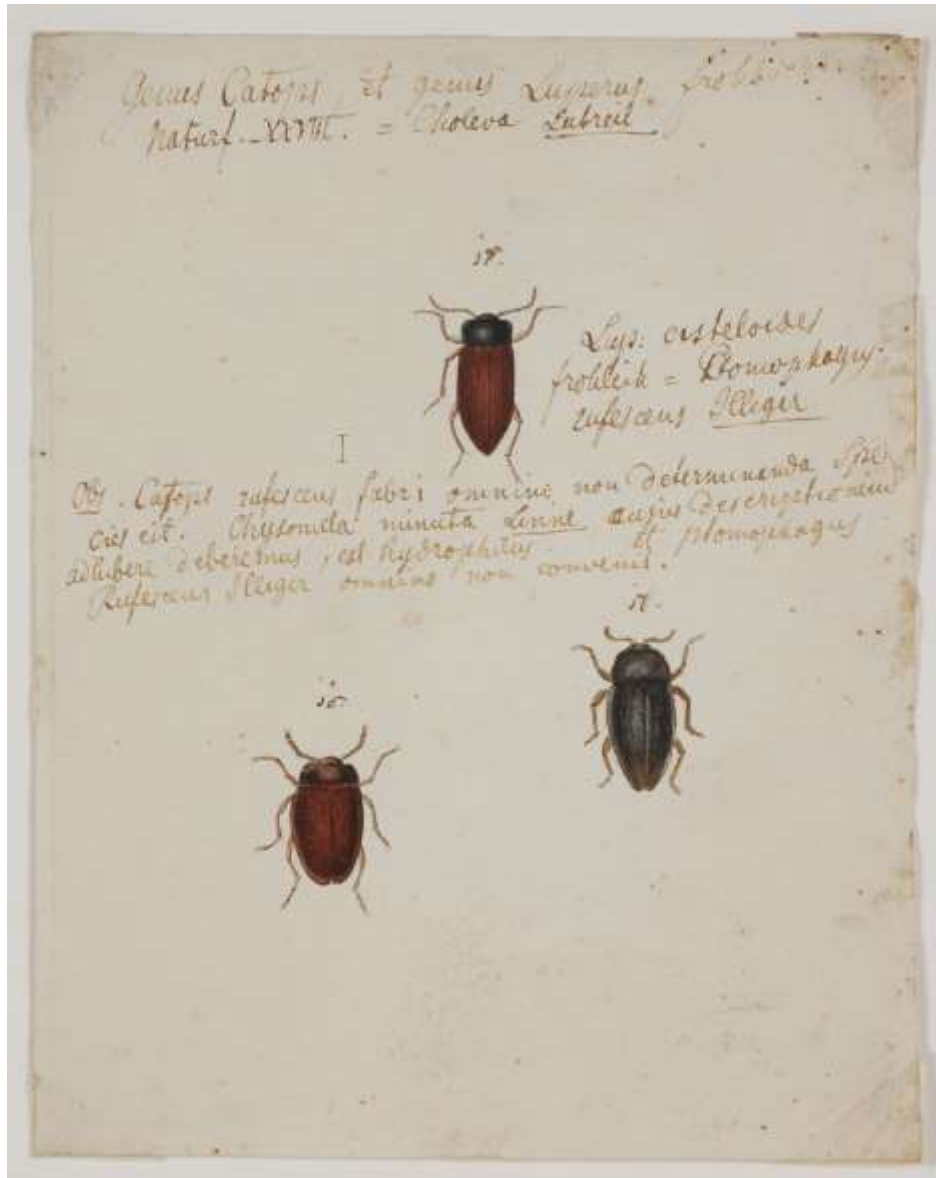 Genus Catops et genus Luperus
Naturf. XXVIII. = Choleva Latreil
18.
Lup: cisteloides
frohlich = Ptomophagus
rufescens Illiger
I
Obs. Catops rufescens fabri omnino non determinanda Spe
cies est. Chrysomela minuta Linne cujus descriptionem
adhibere deberemus, est hydrophilus. et ptomophagus
Rufescens Illiger omnino non convenit.
17.
16.